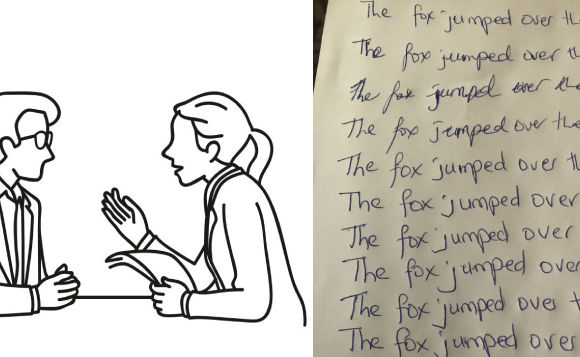 The fox jumped over th
The fox jumped over th
The fox jumped over the
The fox jumped over the
The fox jumped over t
The fox jumped over
The fox jumped over
The fox jumped over
The fox jumped over t
The fox jumped over